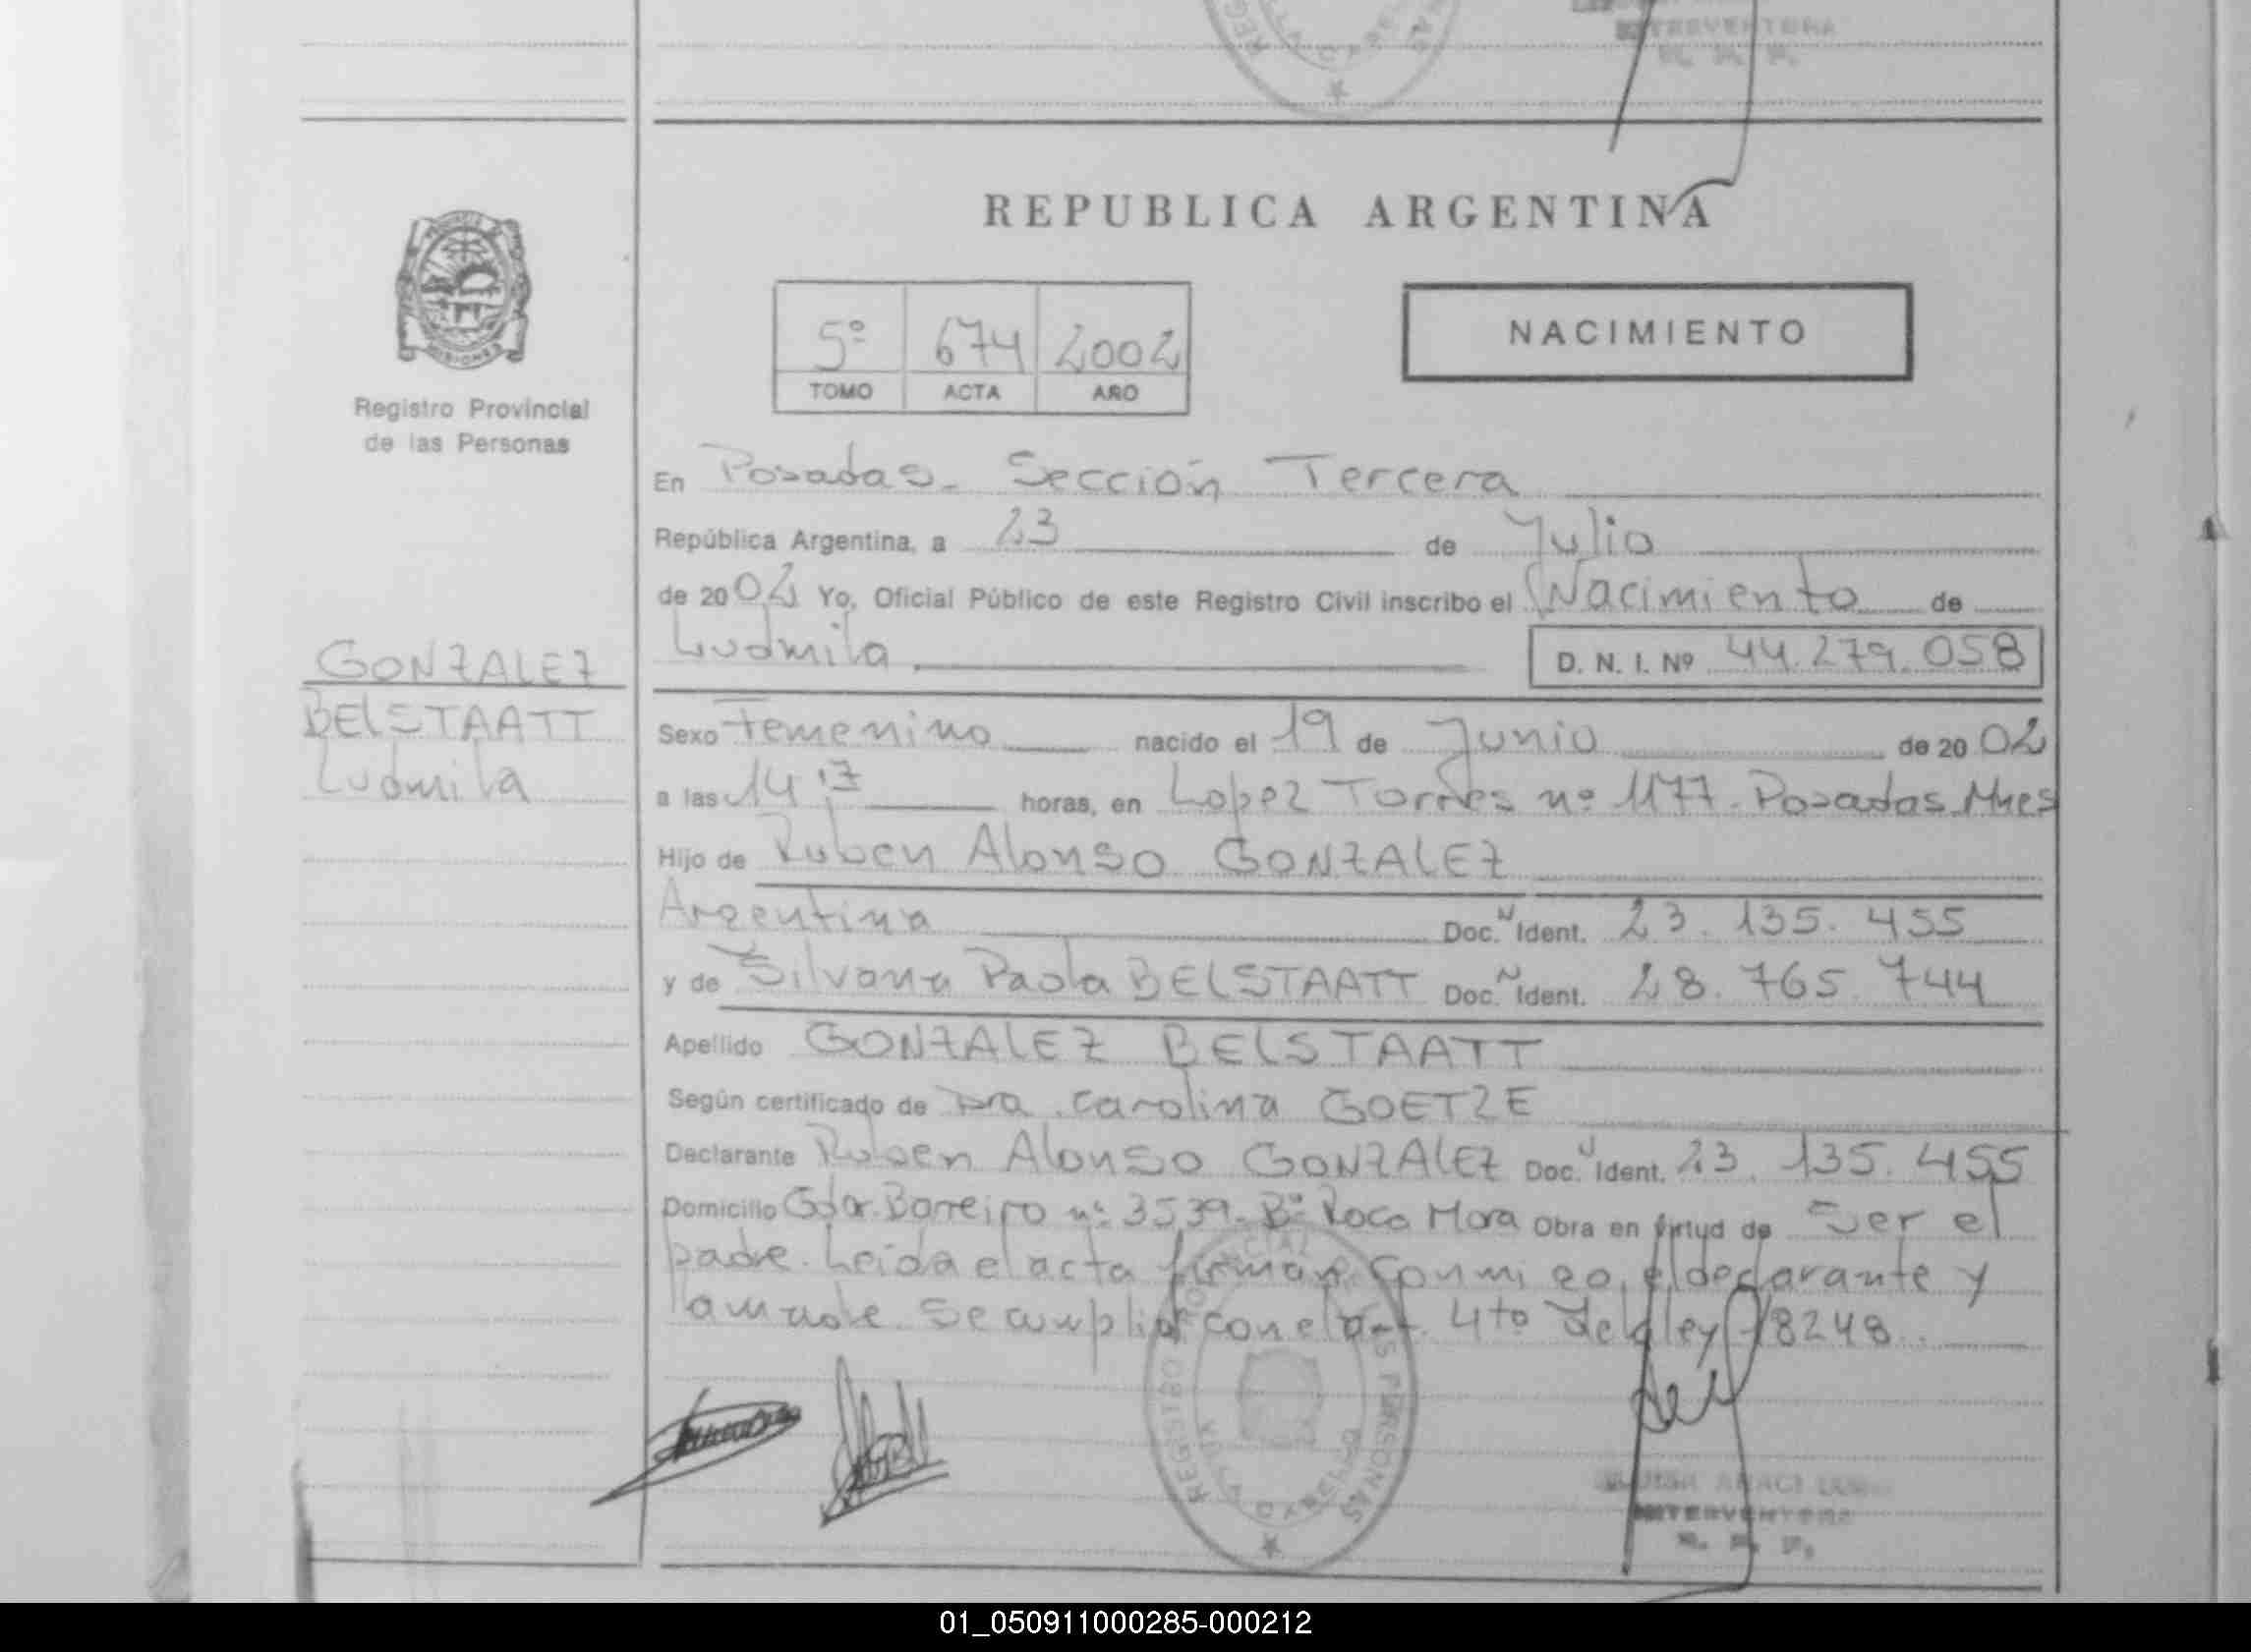 INTERVENTORA
R. P. P.
REPUBLICA ARGENTINA
5º 674 2002
TOMO ACTA AÑO
NACIMIENTO
MISIONES
Registro Provincial
de las Personas
En Posadas - Sección Tercera
República Argentina, a 23 de Julio
de 2002 Yo, Oficial Público de este Registro Civil inscribo el Nacimiento de
Ludmila D. N. I. Nº 44.279.058
GONZALEZ
BELSTAATT
Ludmila
Sexo Femenino nacido el 19 de Junio de 2002
a las 14 17 horas, en Lopez Torres nº 1177 - Posadas Mnes
Hijo de Ruben Alonso GONZALEZ
Argentina Doc. N Ident. 23.135.455
y de Silvana Paola BELSTAATT Doc. N Ident. 28.765.744
Apellido GONZALEZ BELSTAATT
Según certificado de Dra. Carolina GOETZE
Declarante Ruben Alonso GONZALEZ Doc. N Ident. 23.135.455
Domicilio Gdor. Barreiro nº 3539 - Bº Roca Mora Obra en virtud de Ser el
padre. Leida el acta firman conmigo, el declarante y
la madre. Se cumplió con el art. 4to de la ley 18248
REGISTRO PROVINCIAL DE LAS PERSONAS
INTERVENTORA
R. P. P.
01_050911000285-000212